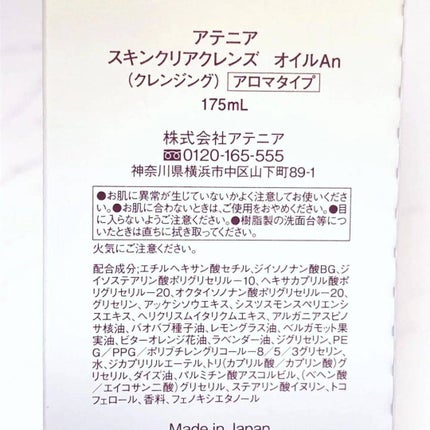 アテニア
スキンクリアクレンズ オイルAn
(クレンジング) アロマタイプ
175mL
株式会社アテニア
0120-165-555
神奈川県横浜市中区山下町89-1
●お肌に異常が生じていないかよく注意してお使いくださ
い。●お肌に合わないときは、ご使用をおやめください。●目
に入らないようご注意ください。●樹脂製の洗面台等につ
いたときは直ちに拭き取ってください。
火気にご注意ください。
配合成分;エチルヘキサン酸セチル、ジイソノナン酸BG、ジ
イソステアリン酸ポリグリセリル-10、ヘキサカプリル酸ポ
リグリセリル-20、オクタイソノナン酸ポリグリセリル-20、
グリセリン、アッケシソウエキス、シスツスモンスペリエンシ
スエキス、ヘリクリスムイタリクムエキス、アルガニアスピノ
サ核油、バオバブ種子油、レモングラス油、ベルガモット果
実油、ビターオレンジ花油、ラベンダー油、ジグリセリン、PE
G/PPG/ポリブチレングリコール-8/5/3グリセリン、
水、ジカプリリルエーテル、トリ(カプリル酸/カプリン酸)グ
リセリル、ダイズ油、パルミチン酸アスコルビル、(ベヘン酸
/エイコサン二酸)グリセリル、ステアリン酸イヌリン、トコ
フェロール、香料、フェノキシエタノール
Made in Japan